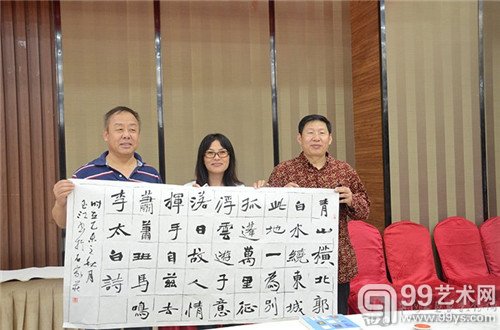 青山橫北郭
白水繞東城
此地一為別
孤蓬萬里征
浮雲遊子意
落日故人情
揮手自茲去
蕭蕭班馬鳴
李太白詩
秋月
江書於石家莊
99艺术网
www.99ys.com